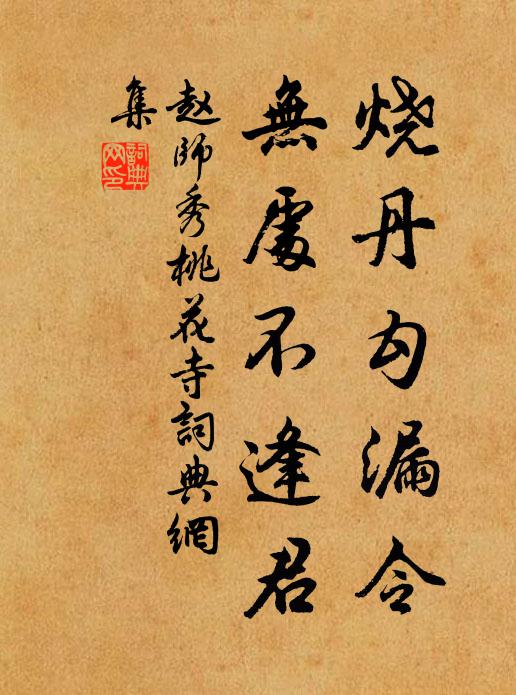 烧丹勾漏令
無處不逢君
赵師秀桃花寺詞典網
集
詞典網印